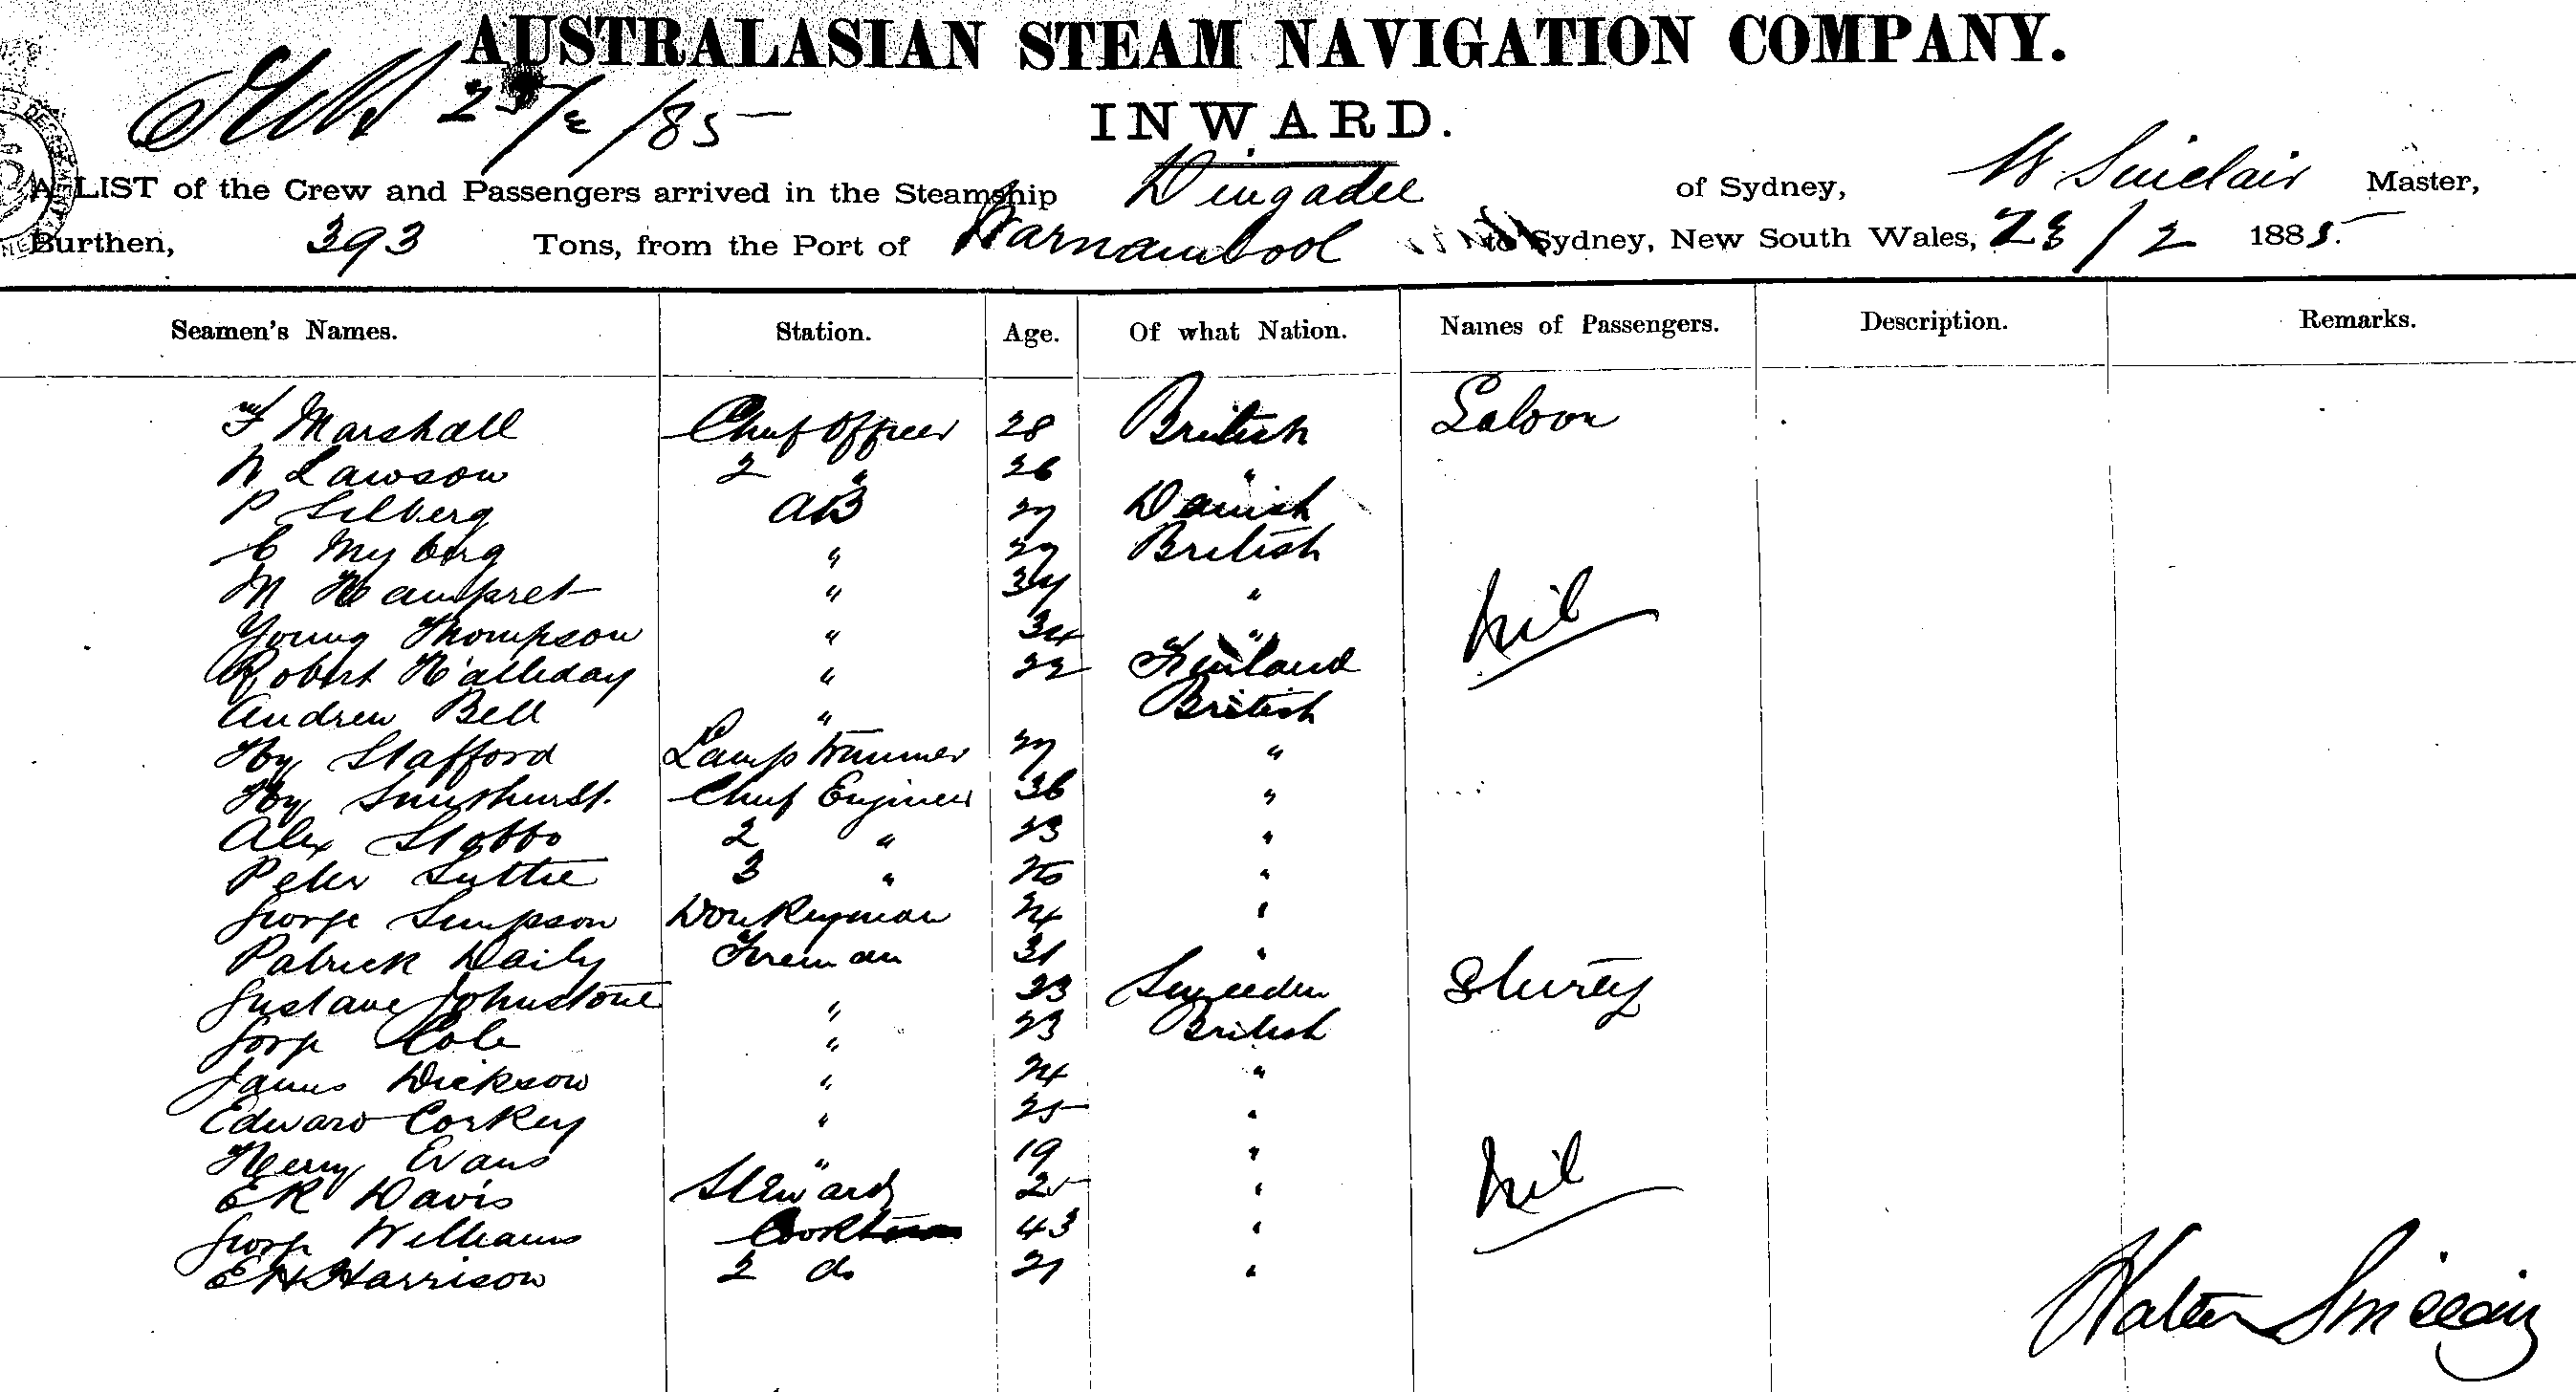 AUSTRALASIAN STEAM NAVIGATION COMPANY.
25/2/85
INWARD.
A LIST of the Crew and Passengers arrived in the Steamship Dingadee of Sydney, W Sinclair Master,
Burthen, 393 Tons, from the Port of Warnambool to Sydney, New South Wales, 23/2 1885.
Seamen's Names. Station. Age. Of what Nation. Names of Passengers. Description. Remarks.
F Marshall Chief Officer 28 British Saloon
W Lawson 2 " 26 "
P Silberg AB 27 Danish
C Myberg " 27 British
M " 34 "
Young Thompson " 34 " Nil
Robert Halliday " 22 Finland
Andrew Bell " British
Hy Stafford Lamp trimmer 27 "
Hy Smithurst. Chief Engineer 36 "
Alex Stobbo 2 " 23 "
Peter Suttie 3 " 26 "
George Simpson Donkeyman 24 "
Patrick Daily Fireman 31 "
Gustave Johnstone " 23 Sweeden
George Cole " 23 British
James Dickson " 24 "
Edward Corkey " 25 "
Henry Evans " 19 " Nil
ER Davis Steward 25 "
George Williams Cook 43 "
EH Harrison 2 do 21 "
Walter Sinclair